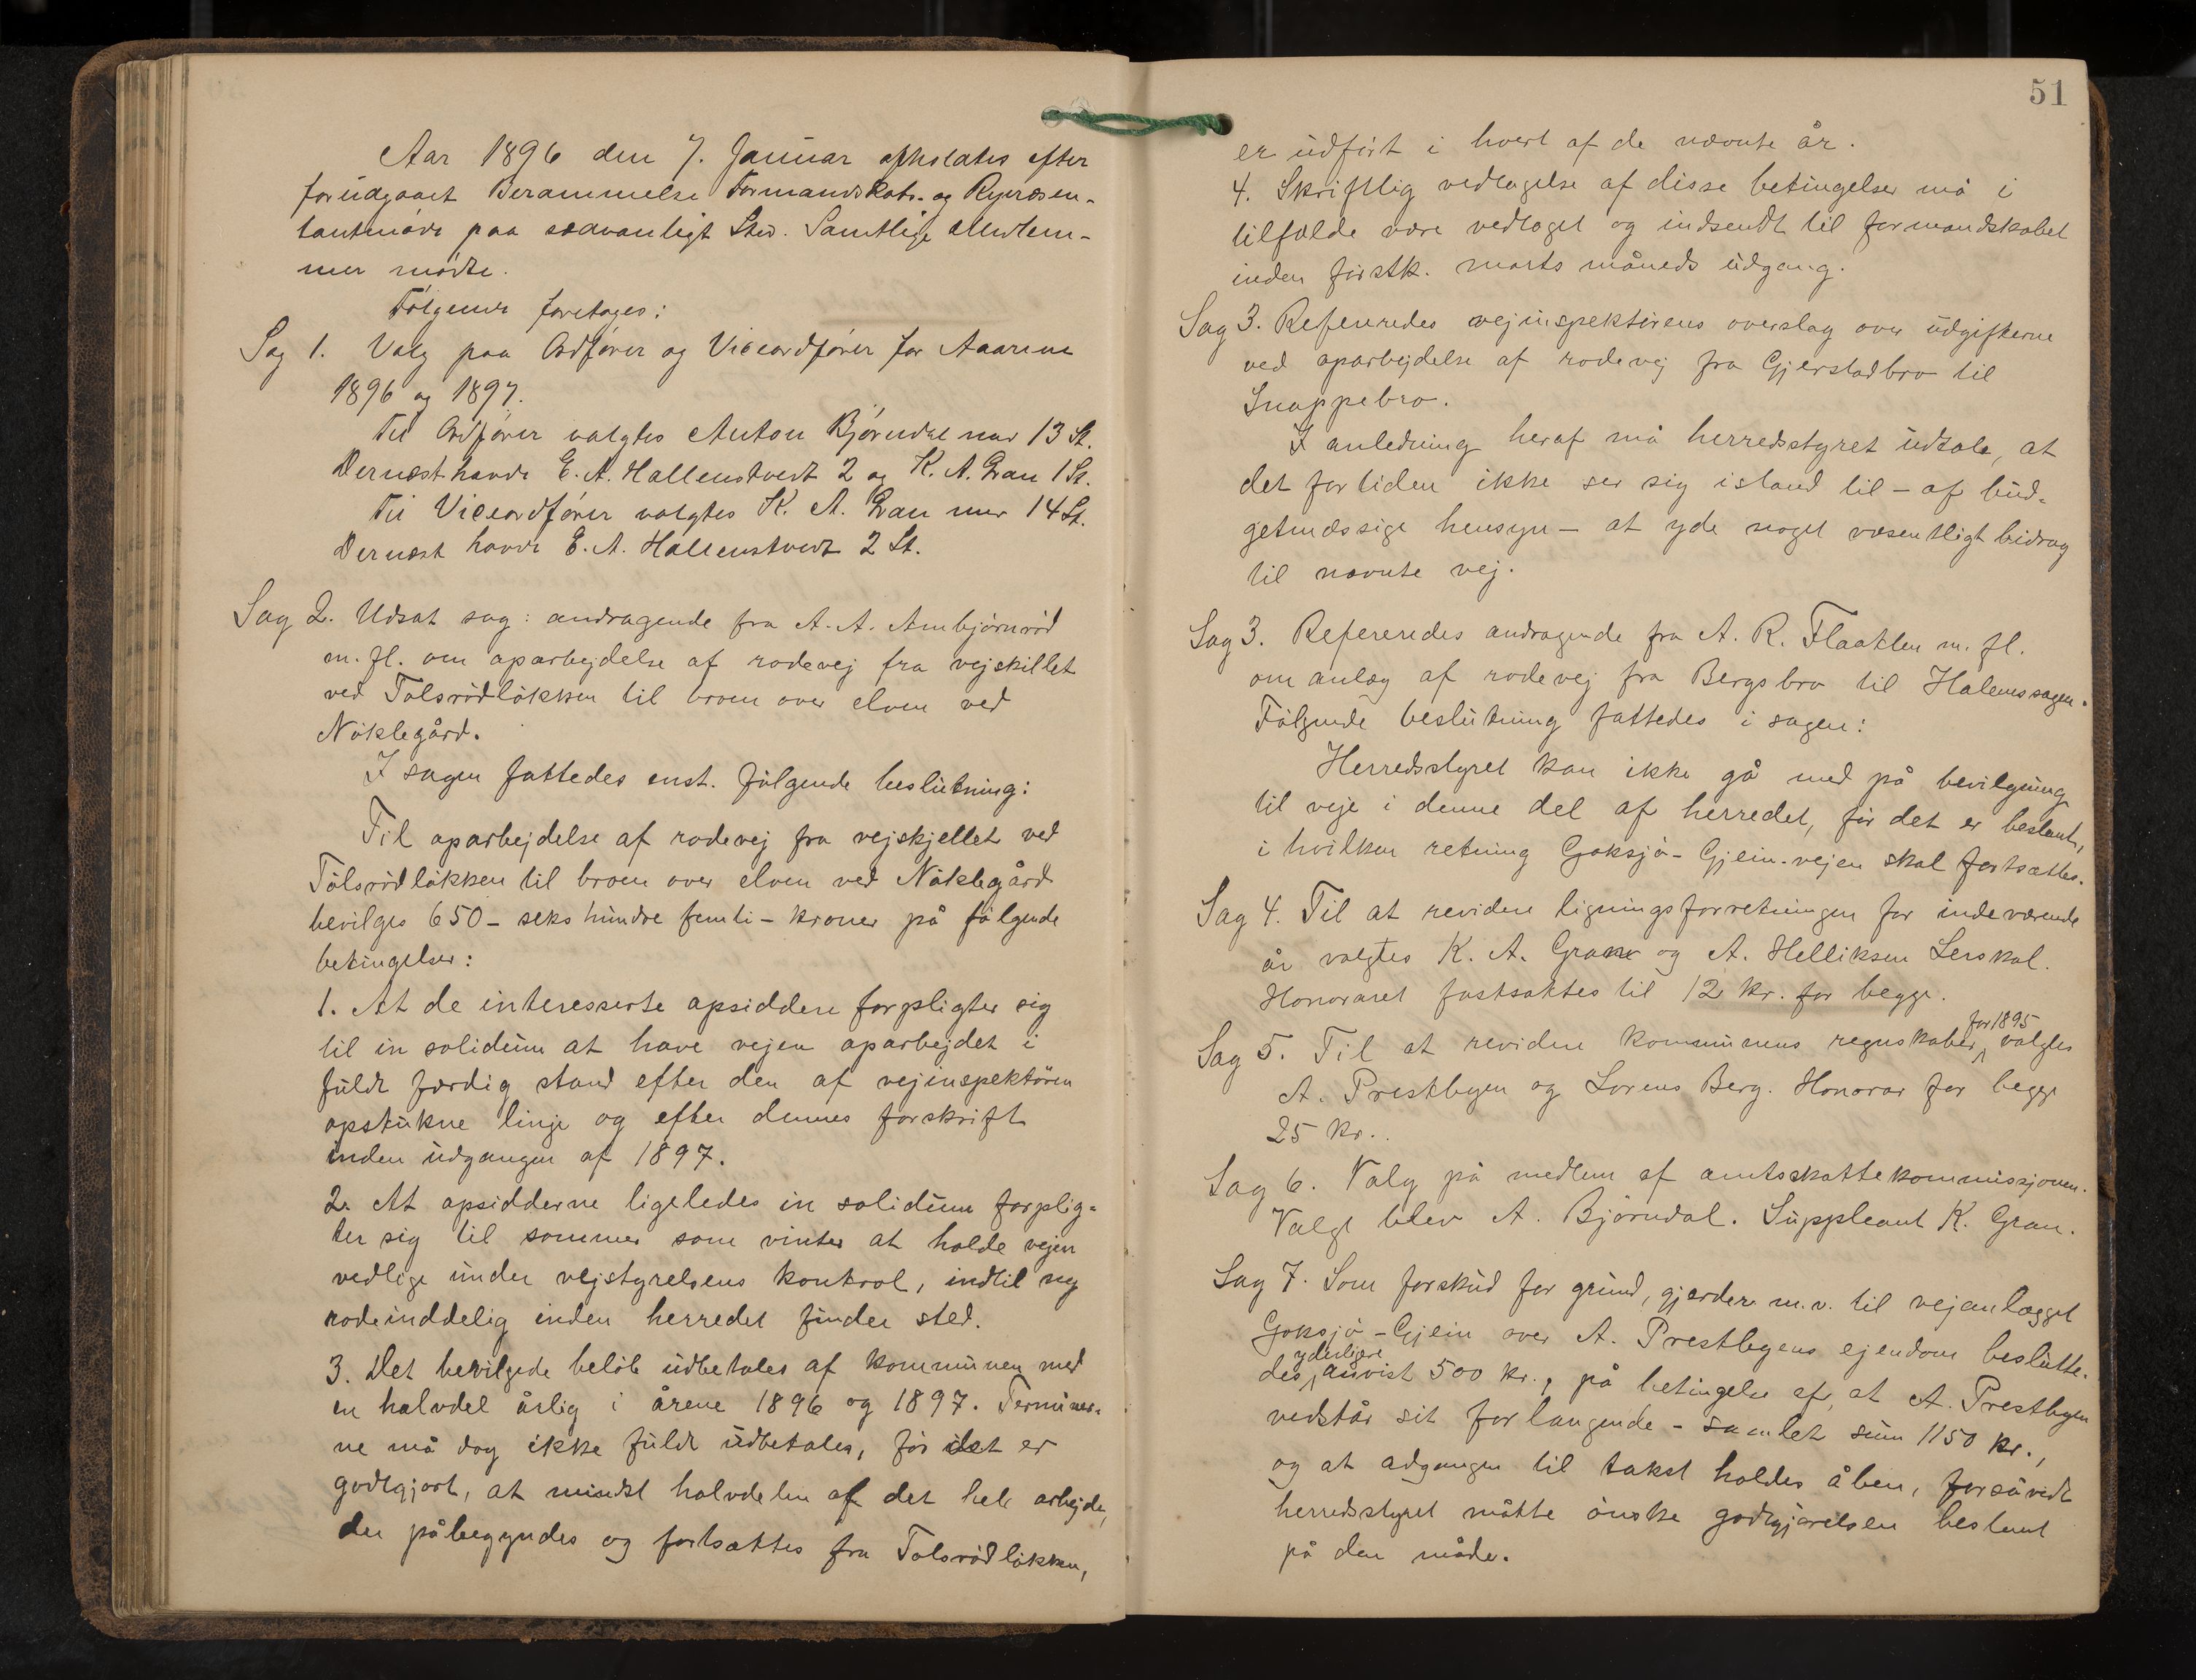 Aar 1896 den 7. Januar afholdtes efter
forudgaaet Berammelse Formandskabs- og Repræsen-
tantmøde paa sædvanligt Sted. Samtlige Medlem-
mer mødte.
Følgende foretoges:
Sag 1. Valg paa Ordfører og Viceordfører for Aarene
1896 og 1897.
Til Ordfører valgtes Anton Bjørndal med 13 St.
Dernæst havde E. A. Hallenstvedt 2 og K. A. Gran 1 St.
Til Viceordfører valgtes K. A. Gran med 14 St.
Dernæst havde E. A. Hallenstvedt 2 St.
Sag 2. Udsat sag: andragende fra A. A. Ambjørnrød
m. fl. om oparbejdelse af rodevej fra vejskillet
ved Tolsrødløkken til broen over elven ved
Nøklegård.
I sagen fattedes enst. følgende beslutning:
Til oparbejdelse af rodevej fra vejskjellet ved
Tolsrødløkken til broen over elven ved Nøklegård
bevilges 650 - seks hundre femti - kroner på følgende
betingelser:
1. At de interesserte opsiddere forpligter sig
til in solidum at have vejen oparbejdet i
fuldt færdig stand efter den af vejinspektøren
opstukne linje og efter dennes forskrift
inden udgangen af 1897.
2. At opsidderne ligeledes in solidum forplig-
ter sig til sommer som vinter at holde vejen
vedlige under vejstyrelsens kontrol, indtil ny
rodeinddelig inden herredet finder sted.
3. Det bevilgede beløb udbetales af kommunen med
en halvdel årlig i årene 1896 og 1897. Terminer-
ne må dog ikke fuldt udbetales, før det er
godtgjort, at mindst halvdelen af det hele arbejde,
der påbegyndes og fortsættes fra Tolsrødløkken,
51
er udført i hvert af de nævnte år.
4. Skriftlig vedtagelse af disse betingelser må i
tilfælde være vedtaget og indsendt til formandskabet
inden førstk. marts måneds udgang.
Sag 3. Refereredes vejinspektørens overslag over udgifterne
ved oparbejdelse af rodevej fra Gjerstadbro til
Snappebro.
I anledning heraf må herredsstyret udtale, at
det for tiden ikke ser sig istand til - af bud-
getmæssige hensyn - at yde noget væsentligt bidrag
til nævnte vej.
Sag 3. Refereredes andragende fra A. R. Flaatten m. fl.
om anlæg af rodevej fra Bergsbro til Halenssagen.
Følgende beslutning fattedes i sagen:
Herredsstyret kan ikke gå med på bevilgning
til veje i denne del af herredet, før det er bestemt,
i hvilken retning Goksjø-Gjein-vejen skal fortsættes.
Sag 4. Til at revidere ligningsforretningen for indeværende
år valgtes K. A. Gran og A. Helliksen Lerskal.
Honoraret fastsattes til 12 kr. for begge.
Sag 5. Til at revidere kommunens regnskaber for 1895 valgtes
A. Prestbyen og Lorens Berg. Honorar for begge
25 kr.
Sag 6. Valg på medlem af amtsskattekommissjonen.
Valgt blev A. Bjørndal. Suppleant K. Gran.
Sag 7. Som forskud for grund, gjerder m.v. til vejanlægget
Goksjø-Gjein over A. Prestbyens ejendom beslutte-
des yderligere anvist 500 kr., på betingelse af, at A. Prestbyen
vedstår sit forlangende - samlet sum 1150 kr.,
og at adgangen til takst holdes åben, forsåvidt
herredsstyret måtte ønske godtgjørelsen bestemt
på den måde.